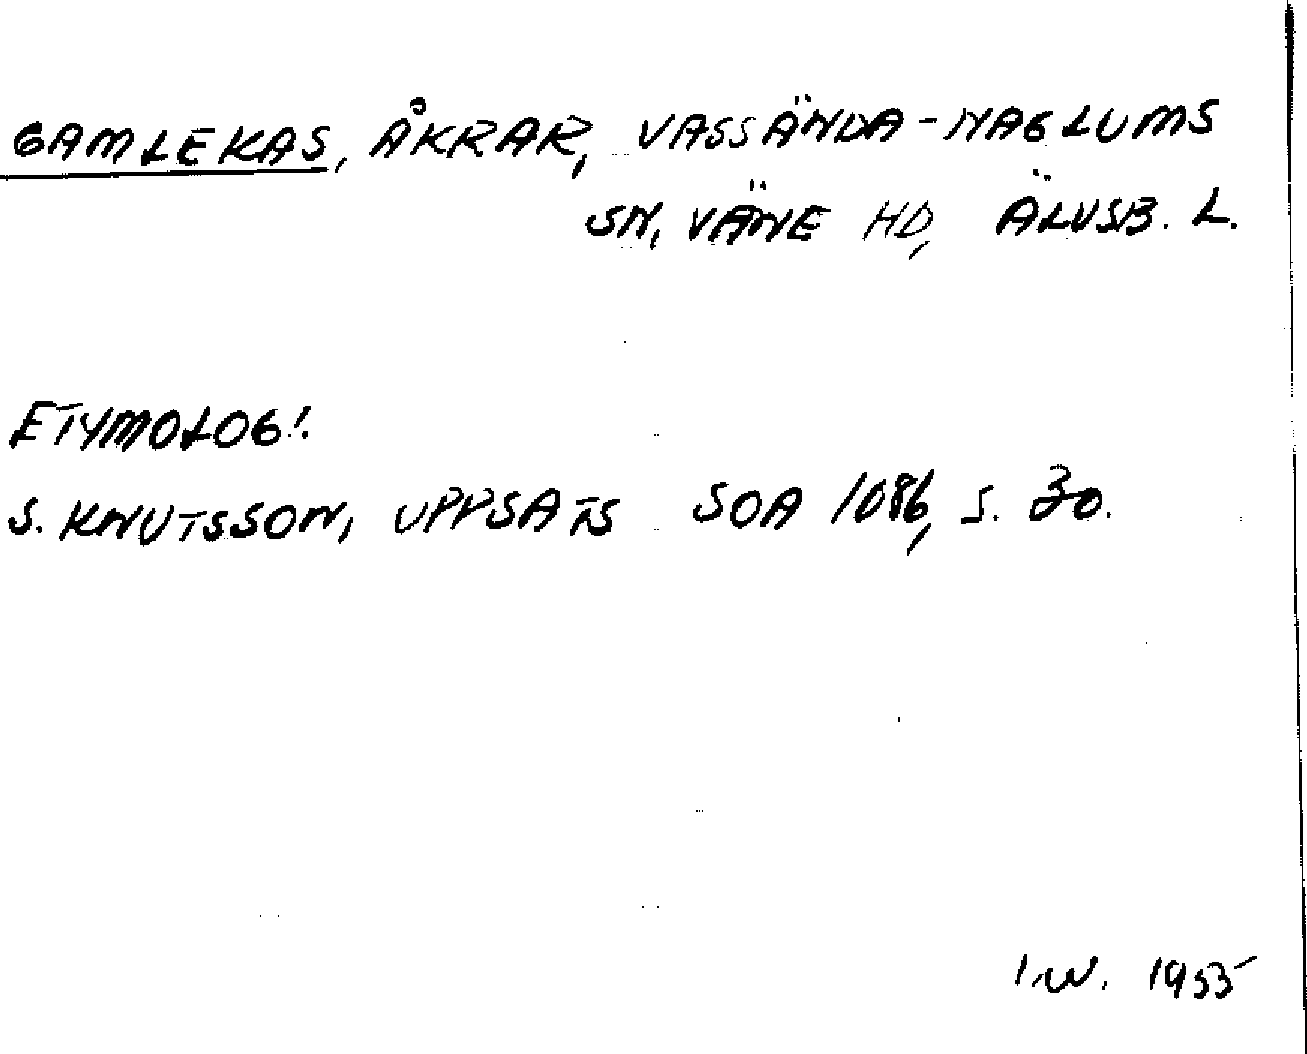 GAMLEKAS, ÅKRAR, VASSÄNDA-NAGLUMS
SN, VÄNE HD, ÄLVSB. L.
ETYMOLOGI.
S. KNUTSSON, UPPSATS SOA 1086, S. 30.
I.W. 1955